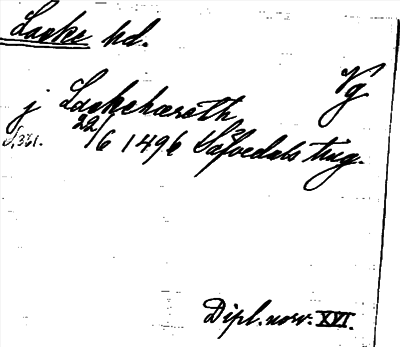 Laske hd.
Vg
j Laskehæreth
N, 361. 22/6 1496 Säfvedals ting.
Dipl. norv. XVI.